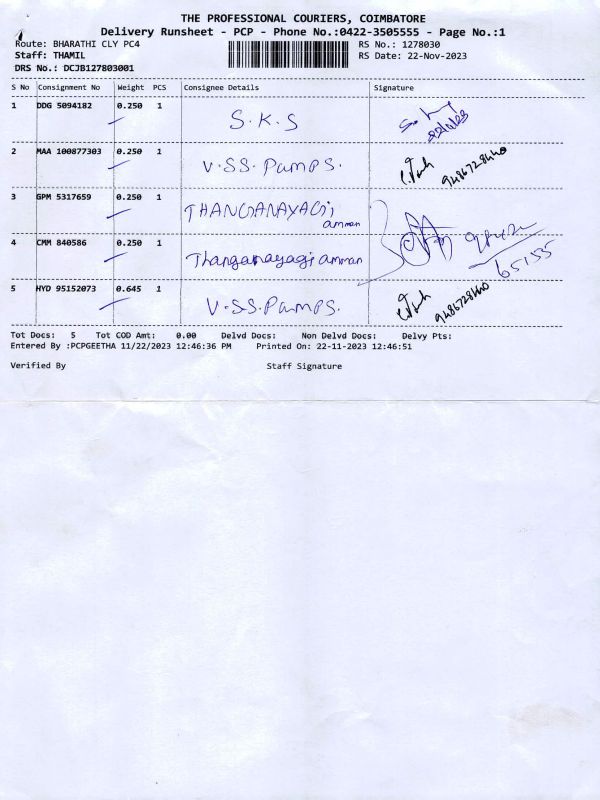 THE PROFESSIONAL COURIERS, COIMBATORE
Delivery Runsheet - PCP - Phone No.:0422-3505555 - Page No.:1
Route: BHARATHI CLY PC4 RS No.: 1278030
Staff: THAMIL RS Date: 22-Nov-2023
DRS No.: DCJB127803001
S No Consignment No Weight PCS Consignee Details Signature
1 DDG 5094182 0.250 1 S.K.S
2 MAA 100877303 0.250 1 V.SS. Pumps. 9486728440
3 GPM 5317659 0.250 1 THANGANAYAGi
amman
4 CMM 840586 0.250 1 Thanganayagi amman 65155
5 HYD 95152073 0.645 1 V.SS.Pumps. 9486728440
Tot Docs: 5 Tot COD Amt: 0.00 Delvd Docs: Non Delvd Docs: Delvy Pts:
Entered By :PCPGEETHA 11/22/2023 12:46:36 PM Printed On: 22-11-2023 12:46:51
Verified By Staff Signature